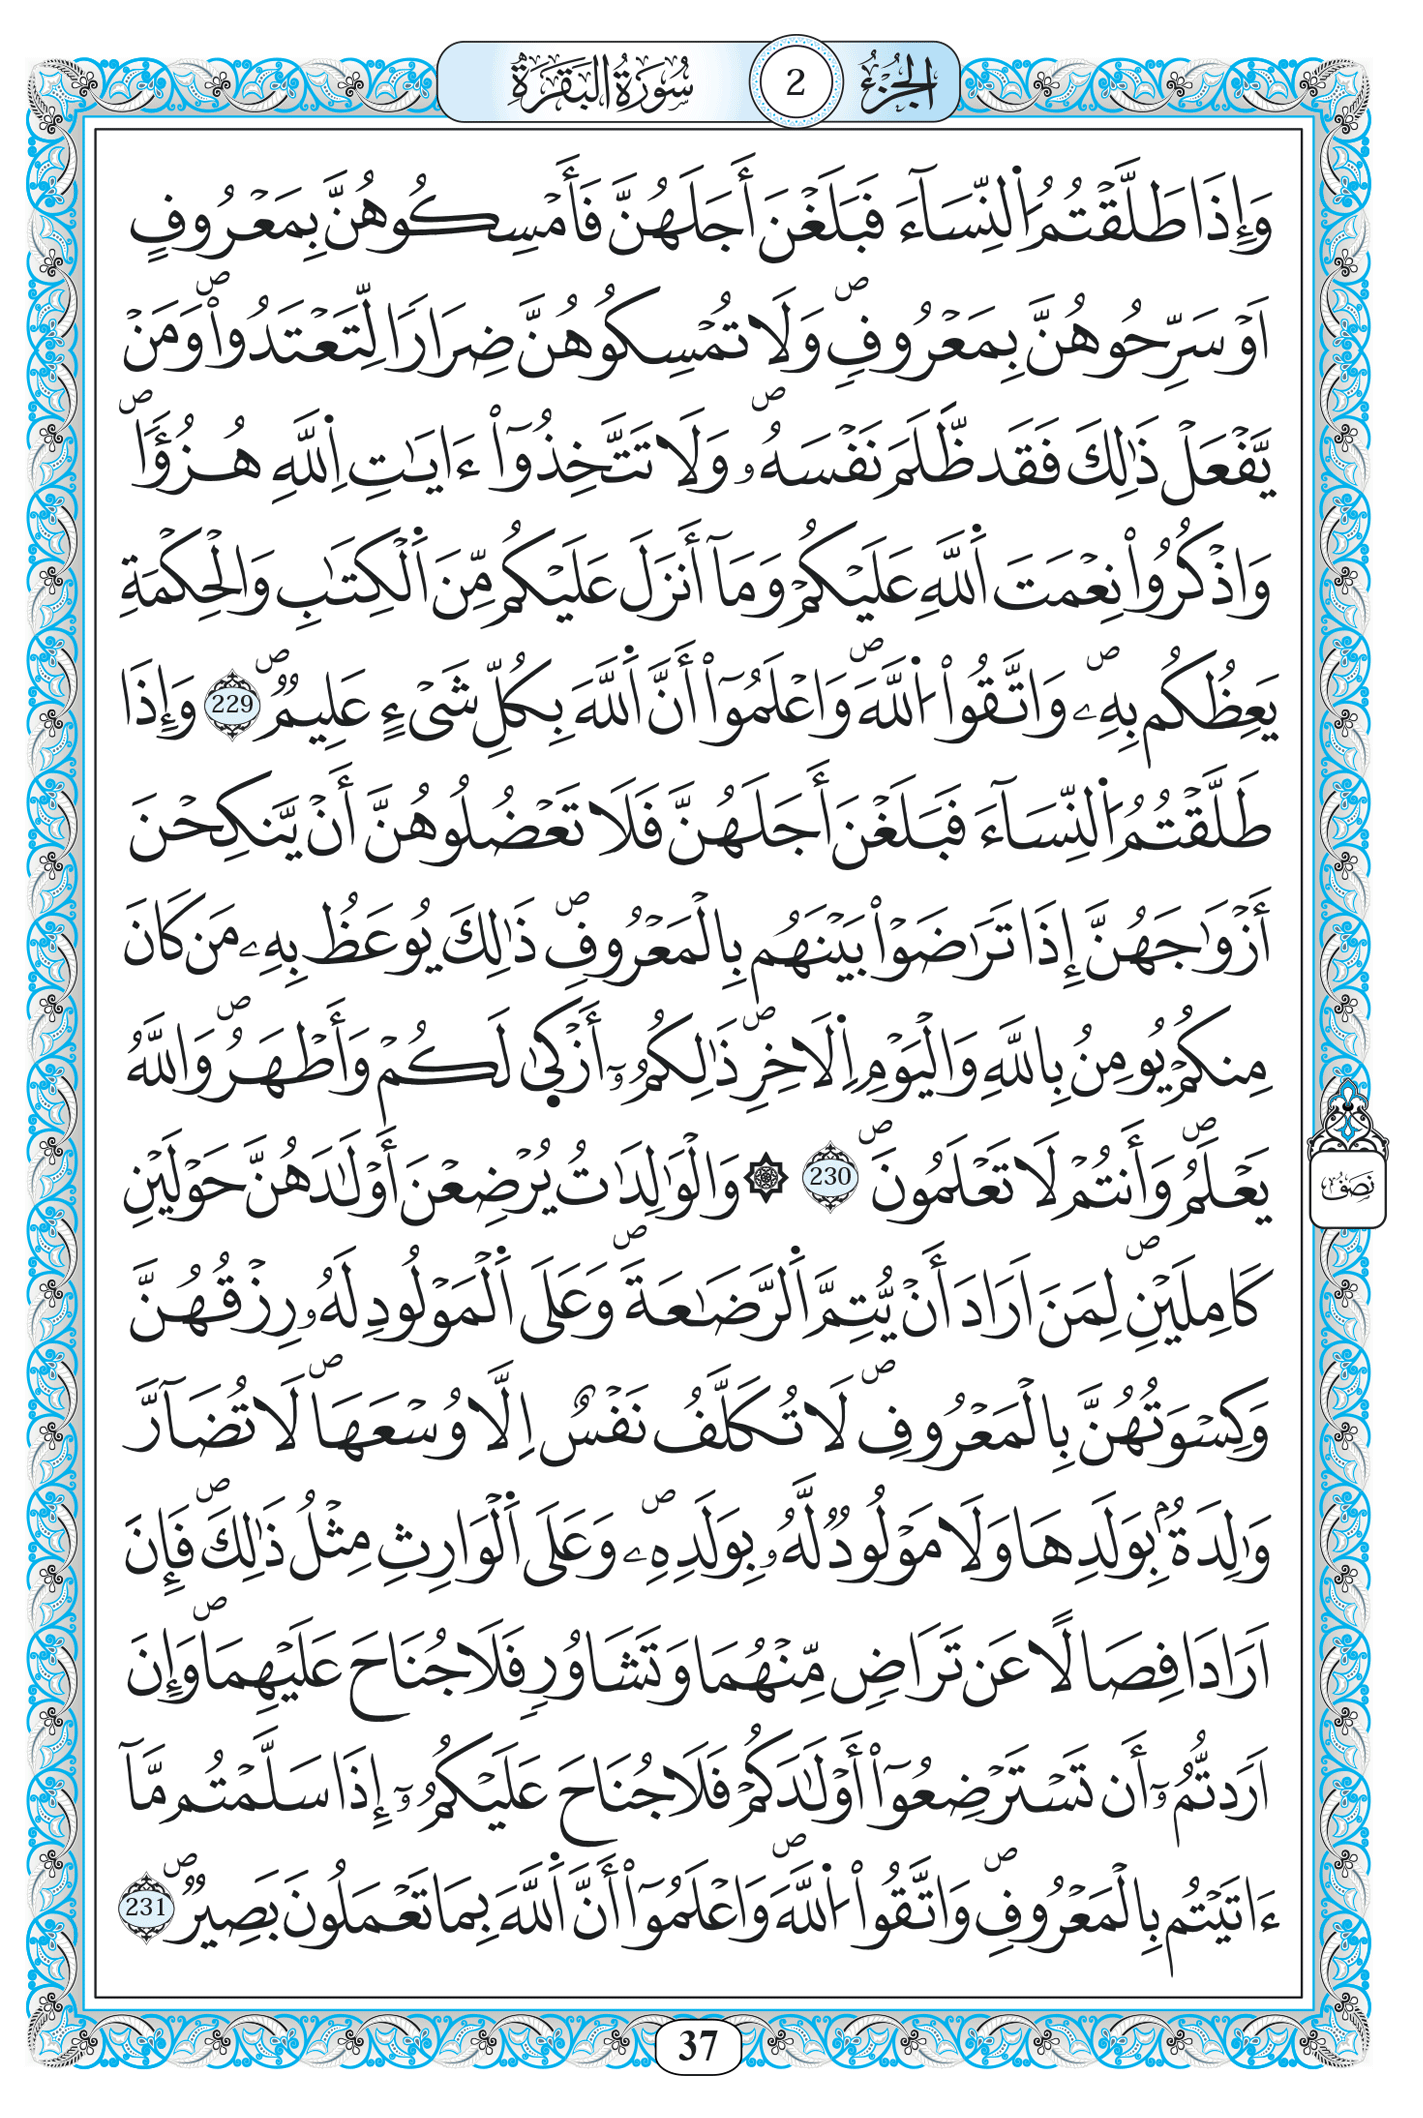 الجزء 2 سورة البقرة
وَإِذَا طَلَّقْتُمُ اُ۬لنِّسَآءَ فَبَلَغْنَ أَجَلَهُنَّ فَأَمْسِكُوهُنَّ بِمَعْرُوفٍ
اَوْ سَرِّحُوهُنَّ بِمَعْرُوفٖۖ وَلَا تُمْسِكُوهُنَّ ضِرَارٗا لِّتَعْتَدُواْۖ وَمَنْ
يَّفْعَلْ ذَٰلِكَ فَقَد ظَّلَمَ نَفْسَهُۥۖ وَلَا تَتَّخِذُوٓاْ ءَايَٰتِ اِ۬للَّهِ هُزُؤٗاۖ
وَاذْكُرُواْ نِعْمَتَ اَ۬للَّهِ عَلَيْكُمْ وَمَآ أَنزَلَ عَلَيْكُم مِّنَ اَ۬لْكِتَٰبِ وَالْحِكْمَةِ
يَعِظُكُم بِهِۦۖ وَاتَّقُواْ اُ۬للَّهَۖ وَاعْلَمُوٓاْ أَنَّ اَ۬للَّهَ بِكُلِّ شَےْءٍ عَلِيمٞۖ 229 وَإِذَا
طَلَّقْتُمُ اُ۬لنِّسَآءَ فَبَلَغْنَ أَجَلَهُنَّ فَلَا تَعْضُلُوهُنَّ أَنْ يَّنكِحْنَ
أَزْوَٰجَهُنَّ إِذَا تَرَٰضَوْاْ بَيْنَهُم بِالْمَعْرُوفِۖ ذَٰلِكَ يُوعَظُ بِهِۦ مَن كَانَ
مِنكُمْ يُومِنُ بِاللَّهِ وَالْيَوْمِ اِ۬لَاخِرِۖ ذَٰلِكُمُۥٓ أَزْكَىٰ لَكُمْ وَأَطْهَرُۖ وَاللَّهُ
يَعْلَمُۖ وَأَنتُمْ لَا تَعْلَمُونَۖ 230 ۞ وَالْوَٰلِدَٰتُ يُرْضِعْنَ أَوْلَٰدَهُنَّ حَوْلَيْنِ
كَامِلَيْنِۖ لِمَنَ اَرَادَ أَنْ يُّتِمَّ اَ۬لرَّضَٰعَةَۖ وَعَلَى اَ۬لْمَوْلُودِ لَهُۥ رِزْقُهُنَّ
وَكِسْوَتُهُنَّ بِالْمَعْرُوفِۖ لَا تُكَلَّفُ نَفْسٌ اِلَّا وُسْعَهَاۖ لَا تُضَآرَّ
وَٰلِدَةُۢ بِوَلَدِهَا وَلَا مَوْلُودٞ لَّهُۥ بِوَلَدِهِۦۖ وَعَلَى اَ۬لْوَارِثِ مِثْلُ ذَٰلِكَۖ فَإِنَ
اَرَادَا فِصَالًا عَن تَرَاضٖ مِّنْهُمَا وَتَشَاوُرٖ فَلَا جُنَاحَ عَلَيْهِمَاۖ وَإِنَ
اَرَدتُّمُۥٓ أَن تَسْتَرْضِعُوٓاْ أَوْلَٰدَكُمْ فَلَا جُنَاحَ عَلَيْكُمُۥٓ إِذَا سَلَّمْتُم مَّآ
ءَاتَيْتُم بِالْمَعْرُوفِۖ وَاتَّقُواْ اُ۬للَّهَۖ وَاعْلَمُوٓاْ أَنَّ اَ۬للَّهَ بِمَا تَعْمَلُونَ بَصِيرٞۖ 231
نصف
37